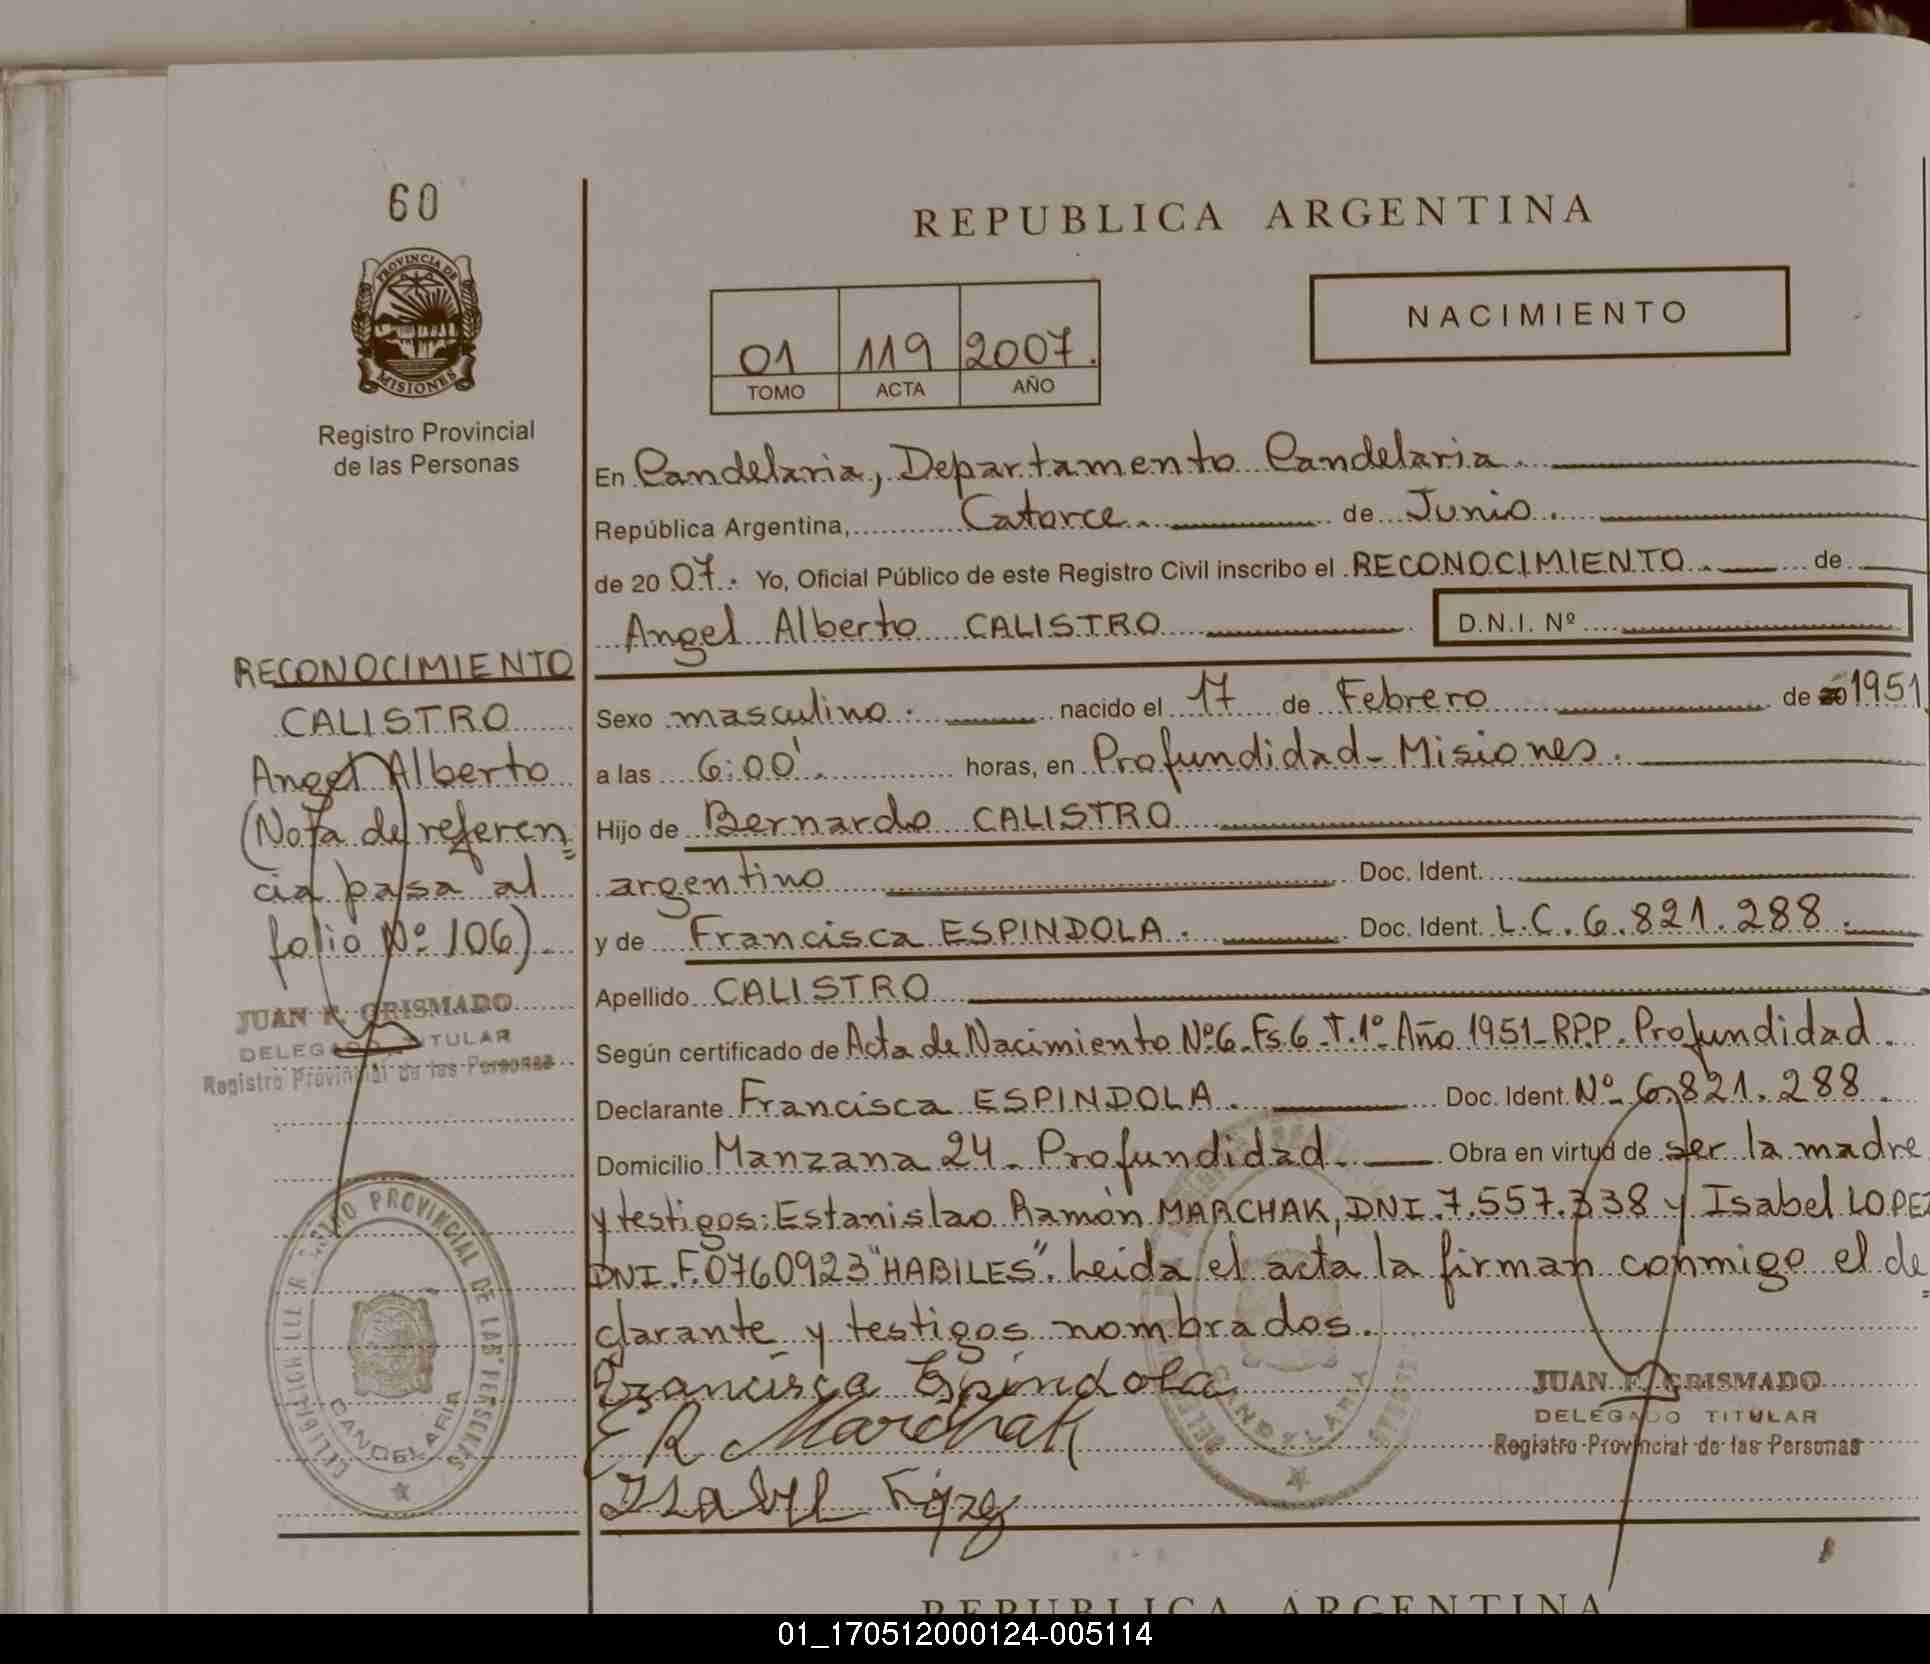 60
PROVINCIA DE
MISIONES
Registro Provincial
de las Personas
REPUBLICA ARGENTINA
01 119 2007.
TOMO ACTA AÑO
NACIMIENTO
En Candelaria, Departamento Candelaria.
República Argentina, Catorce. de Junio.
de 20 07. Yo, Oficial Público de este Registro Civil inscribo el RECONOCIMIENTO. de
Angel Alberto CALISTRO D.N.I. Nº
Sexo masculino. nacido el 17 de Febrero de 20 1951
a las 6:00'. horas, en Profundidad - Misiones.
Hijo de Bernardo CALISTRO
argentino Doc. Ident.
y de Francisca ESPINDOLA. Doc. Ident. L.C. 6.821.288.
Apellido CALISTRO
Según certificado de Acta de Nacimiento Nº6_Fs.6_T.1º_Año 1951_R.P.P. Profundidad.
Declarante Francisca ESPINDOLA. Doc. Ident. Nº 6.821.288.
Domicilio Manzana 24_ Profundidad. Obra en virtud de ser la madre
y testigos: Estanislao Ramón MARCHAK, DNI.7.557.338 y Isabel LOPEZ
DNI.F.0760923 "HABILES". Leida el acta la firman conmigo el de=
clarante y testigos nombrados.
Francisca Espindola
E R Marchak
JUAN F. GRISMADO
DELEGADO TITULAR
Registro Provincial de las Personas
RECONOCIMIENTO
CALISTRO
Angel Alberto
(Nota de referen=
cia pasa al
folio Nº 106).
JUAN F. GRISMADO
DELEGADO TITULAR
Registro Provincial de las Personas
PROVINCIAL DE LAS PERSONAS
CANDELARIA
REPUBLICA ARGENTINA
01_170512000124-005114